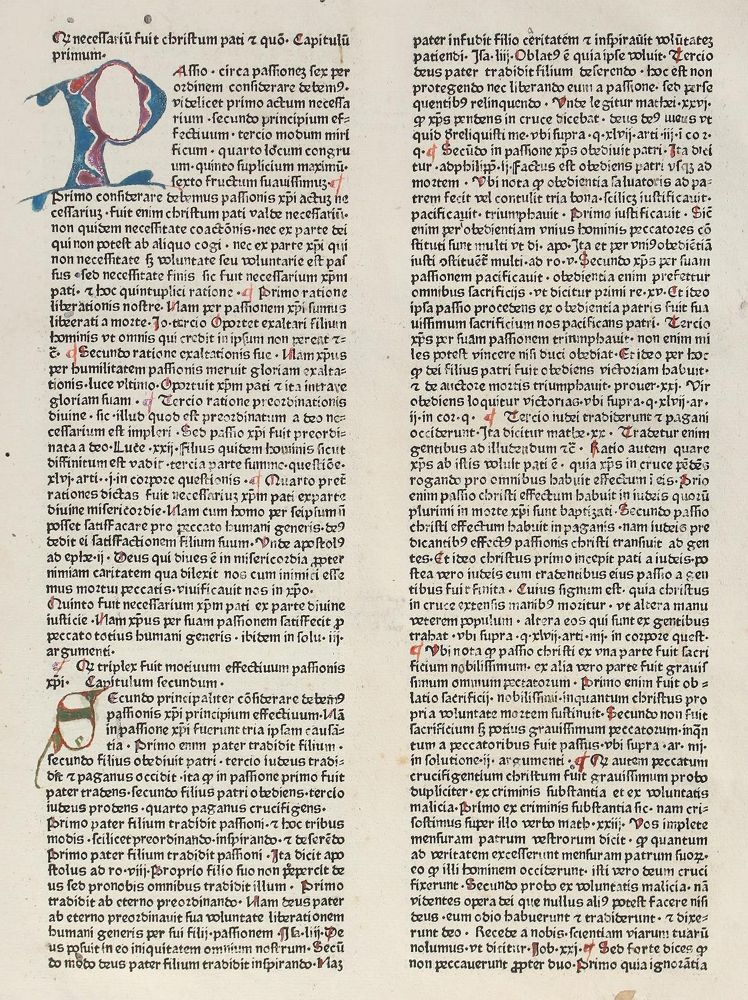 Qꝙ necessariū fuit christum pati ⁊ quō · Capitulū
primum ·
PAssio · circa passionez sex per
ordinem considerare debemꝰ
videlicet primo actum necessa
rium · secundo principium ef⸗
fectiuum · tercio modum miri
ficum · quarto locum congru
um · quinto suplicium maximū ·
sexto fructum suauissimuz ·
Primo considerare debemus passionis xp̄i actuz ne
cessariuz · fuit enim christum pati valde necessariū ·
non quidem necessitate coactōnis · nec ex parte dei
qui non potest ab aliquo cogi · nec ex parte xp̄i qui
non necessitate sꝫ voluntate seu voluntarie est pas
sus · sed necessitate finis sic fuit necessarium xp̄m
pati · ⁊ hoc quintuplici ratione · Primo ratione
liberationis nostre · Nam per passionem xp̄i sumus
liberati a morte · Jo · tercio Oportet exaltari filium
hominis vt omnis qui credit in ipsum non pereat ⁊
c̄ · Secundo ratione exaltationis sue · Nam xp̄us
per humilitatem passionis meruit gloriam exalta⸗
tionis · luce vltimo · Oportuit xp̄m pati ⁊ ita intrare
gloriam suam · Tercio ratione preordinationis
diuine · sic illud quod est preordinatum a deo ne⸗
cessarium est impleri · Sed passio xp̄i fuit preordi⸗
nata a deo · Luce · xxij · filius quidem hominis sicut
diffinitum est vadit · tercia parte summe · questiōe ·
xlvj · arti · · j · in corpore questionis · Quarto pret̄
rationes dictas fuit necessariuz xp̄m pati ex parte
diuine misericordie · Nam cum homo per seipsum ū
posset satisfacere pro peccato humani generis · deꝰ
dedit ei satisfactionem filium suum · Vnde apostolꝰ
ad ephe · ij · Deus qui diues ē in misericordia ꝓpter
nimiam caritatem qua dilexit nos cum inimici esse
mus mortui peccatis · viuificauit nos in xp̄o ·
Quinto fuit necessarium xp̄m pati ex parte diuine
iusticie · Nam xp̄us per suam passionem satisfecit ꝓ
peccato totius humani generis · ibidem in solu · iij ·
argumenti ·
Qꝙ triplex fuit motiuum effectiuum passionis
xp̄i · Capitulum secundum ·
SEcundo principaliter cōsiderare debemꝰ
passionis xp̄i principium effectiuum · Nā
in passione xp̄i fuerunt tria ipsam causā⸗
tia · Primo enim pater tradidit filium ·
secundo filius obediuit patri · tercio iudeus tradi⸗
dit ⁊ paganus occidit · ita ꝙ in passione primo fuit
pater tradens · secundo filius patri obediens · tercio
iudeus prodens · quarto paganus crucifigens ·
Primo pater filium tradidit passioni · ⁊ hoc tribus
modis · scilicet preordinando · inspirando · ⁊ deserēdo
Primo pater filium tradidit passioni · Ita dicit apo
stolus ad ro · viij · Proprio filio suo non pepercit de
us sed pronobis omnibus tradidit illum · Primo
tradidit ab eterno preordinando · Nam deus pater
ab eterno preordinauit sua voluntate liberationem
humani generis per sui filij · passionem · Isa · liij · De
us posuit in eo iniquitatem omnium nostrum · Secū
do modo deus pater filium tradidit inspirando · Naz
pater infudit filio caritatem ⁊ inspirauit volūtatez
patiendi · Isa · liij · Oblatꝰ ē quia ipse voluit · Tercio
deus pater tradidit filium deserendo · hoc est non
protegendo nec liberando eum a passione · sed perse
quentibꝰ relinquendo · Vnde legitur mathei · xxvj ·
ꝙ xp̄s pendens in cruce dicebat · deus deꝰ meus vt
quid ꝺreliquisti me · vbi supra · q · xlvij · arti · iij · i cor ·
q · Secūdo in passione xp̄s obediuit patri · Ita dici
tur · ad philipp · ij · factus est obediens patri vsqꝫ ad
mortem · Vbi nota ꝙ obedientia saluatoris ad pa⸗
trem fecit vel contulit tria bona · scilicꝫ iustificauit ·
pacificauit · triumphauit · Primo iustificauit · Sic̄
enim per obedientiam vnius hominis peccatores cō
stituti sunt multi vt di · apo · Ita et per vniꝰ obediētiā
iusti ꝯstituēt̄ multi · ad ro · v · Secundo xp̄s per suam
passionem pacificauit · obedientia enim prefertur
omnibus sacrificijs · vt dicitur primi re · xv · Et ideo
ipsa passio procedens ex obedientia patris fuit sua
uissimum sacrificium nos pacificans patri · Tercio
xp̄s per suam passionem triumphauit · non enim mi
les potest vincere nisi duci obediat · Et ideo per hoc
ꝙ dei filius patri fuit obediens victoriam habuit ·
⁊ de auctore mortis triumphauit · prouer · xxj · Vir
obediens loquitur victorias · vbi supra · q · xlvij · ar ·
ij · in cor · q · Tercio iudei tradiderunt ⁊ pagani
occiderunt · Ita dicitur mathe · xx · Tradetur enim
gentibus ad illudendum ⁊c̄ · Ratio autem quare
xp̄s ab istis voluit pati ē · quia xp̄s in cruce pēdēs
rogando pro omnibus habuit effectum ī eis · Prīo
enim passio christi effectum habuit in iudeis quorū
plurimi in morte xp̄i sunt baptizati · Secundo passio
christi effectum habuit in paganis · nam iudeis pre
dicantibꝰ effectꝰ passionis christi transiuit ad gen
tes · Et ideo christus primo incepit pati a iudeis · po
stea vero iudeis eum tradentibus eius passio a gen
tibus fuit finita · Cuius signum est · quia christus
in cruce extensis manibꝰ moritur · vt altera manu
veterem populum · altera eos qui sunt ex gentibus
trahat · vbi supra · q · xlvij · arti · iiij · in corpore quest ·
Vbi nota ꝙ passio christi ex vna parte fuit sacri
ficium nobilissimum · ex alia vero parte fuit grauis
simum omnium peccatorum · Primo enim fuit ob⸗
latio sacrificij · nobilissimi · inquantum christus pro
pria voluntate mortem sustinuit · Secundo non fuit
sacrificium sꝫ potius grauissimum peccatorum · inqn̄
tum a peccatoribus fuit passus · vbi supra · ar · iiij ·
in solutione · ij · argumenti · Qꝙ autem peccatum
crucifigentium christum fuit grauissimum probo
dupliciter · ex criminis substantia et ex voluntatis
malicia · Primo ex criminis substantia sic · nam cri⸗
sostimus super illo verbo math · xxiij · Vos implete
mensuram patrum vestrorum dicit · ꝙ quantum
ad veritatem excesserunt mensuram patrum suorꝫ ·
eo ꝙ illi hominem occiderunt · isti vero deum cruci
fixerunt · Secundo probo ex voluntatis malicia · nā
videntes opera dei que nullus aliꝰ potest facere nisi
deus · eum odio habuerunt ⁊ tradiderunt · ⁊ dixe⸗
runt deo · Recede a nobis · scientiam viarum tuarū
nolumus · vt dicitur · Job · xxj · Sed forte dices ꝙ
non peccauerunt ꝓpter duo · Primo quia ignorātia